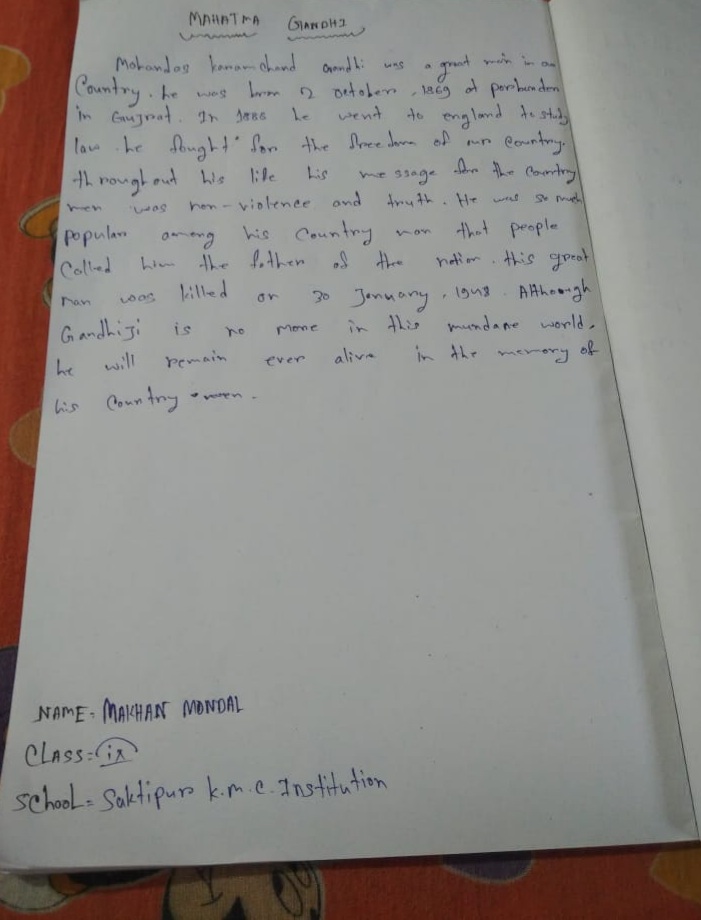 MAHATMA GANDHI
Mohandas karamchand Gandhi was a great man in our
Country. he was born 2 october, 1869 at porbanden
in Gujrat. In 1886 he went to england to study
law. he fought for the freedom of our Country.
throughout his life his message for the Country
men was non-violence and truth. He was so much
popular among his Country man that people
Called him the father of the nation. this great
man was killed on 30 January, 1948. Although
Gandhiji is no more in this mundane world,
he will remain ever alive in the memory of
his Country men.
NAME- MAKHAN MONDAL
CLASS= ix
School= Saktipur k.m.c. Institution